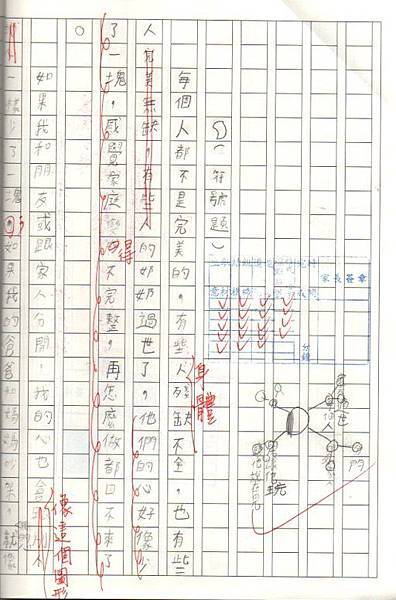 家長簽章
分鐘
（符號題）
每個人都不是完美的，有些人殘缺不全，也有些
身體
人完美無缺，有些人的奶奶過世了，他們的心好像少
了一塊，感覺家庭變得不完整，再怎麼做都回不來了
得
。
如果我和朋友或跟家人分開，我的心也會
像這個圖形
一樣少了一塊。如果我的爸爸和媽媽吵架，就